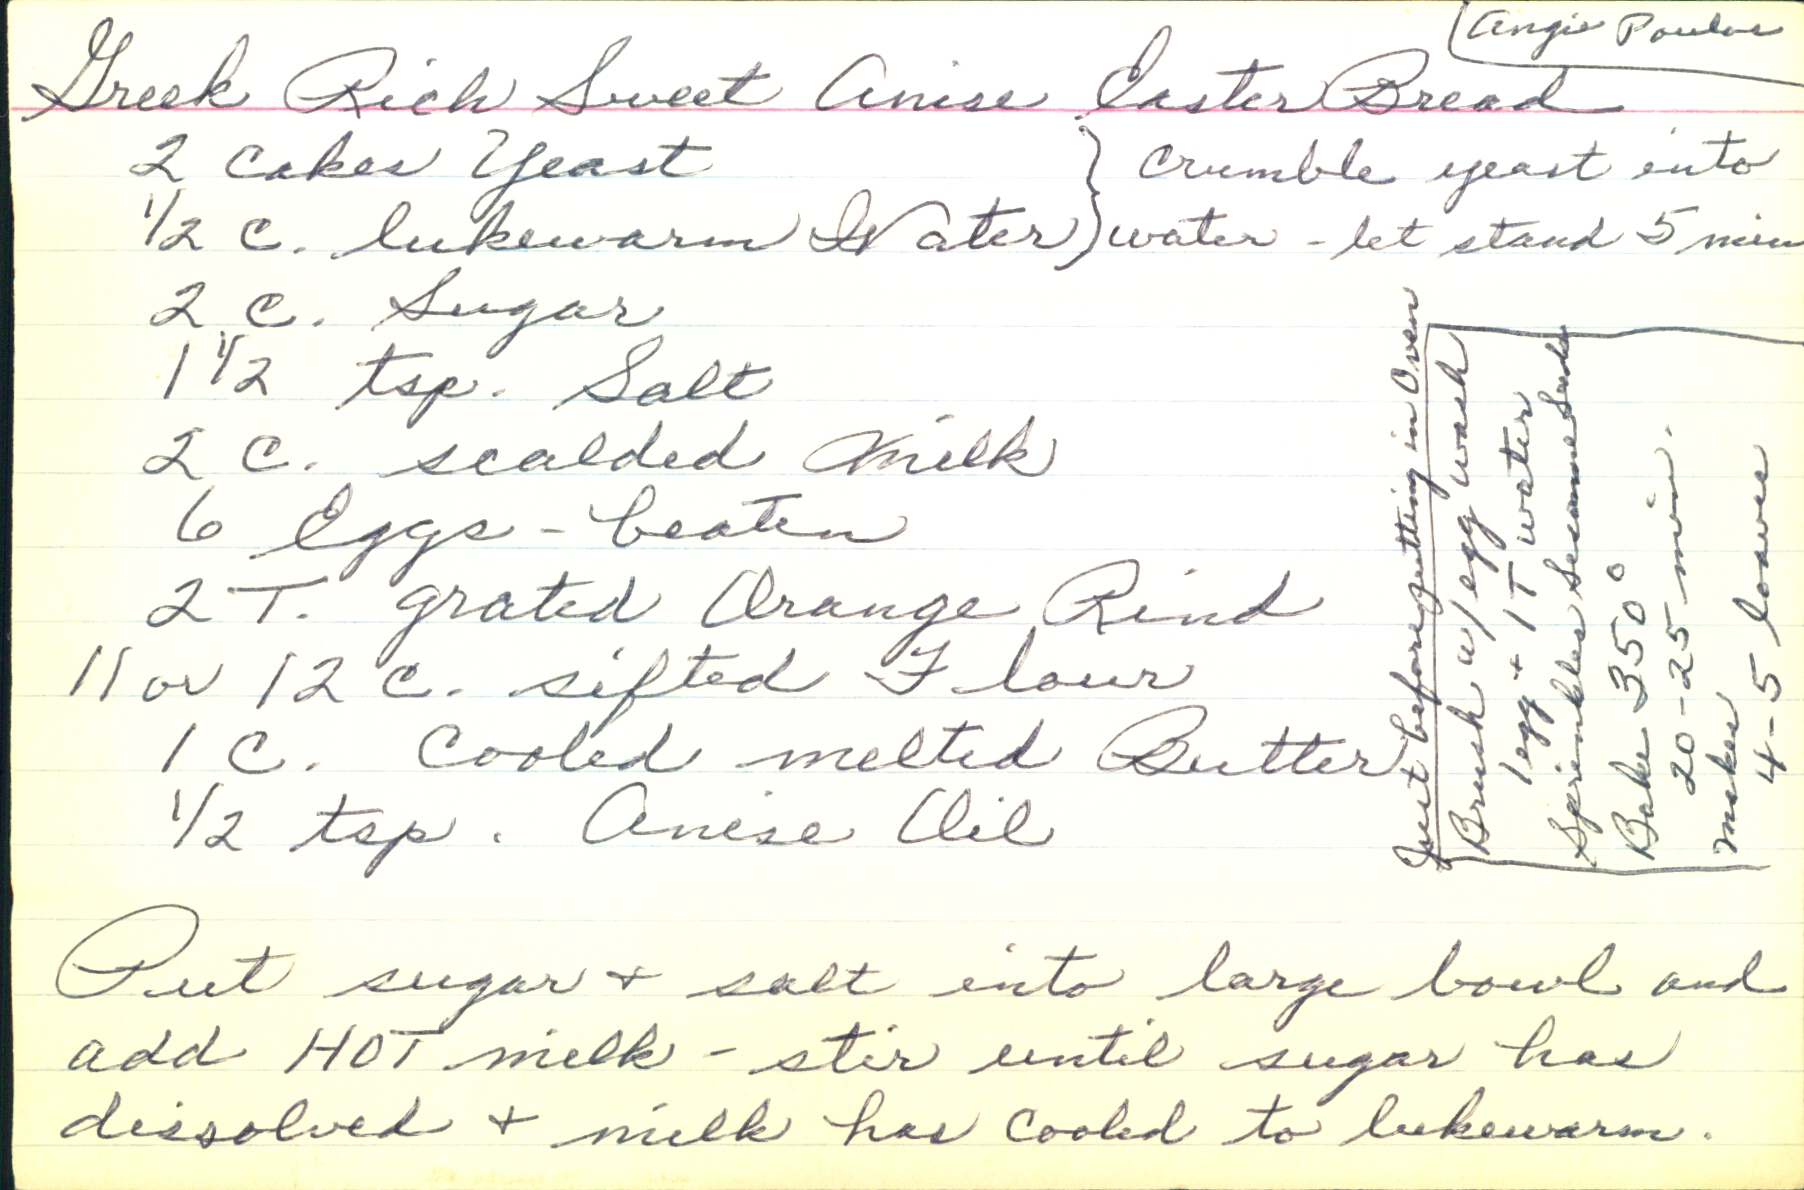 Angie Poulos
Greek Rich Sweet Anise Easter Bread
2 cakes Yeast } crumble yeast into
1/2 c. lukewarm Water } water - let stand 5 min
2 c. Sugar
1 1/2 tsp. Salt
2 c. scalded Milk
6 Eggs - beaten
2 T. grated Orange Rind
11 or 12 c. sifted Flour
1 c. cooled melted Butter
1/2 tsp. Anise Oil
Just before putting in Oven
Brush w/ egg wash
1 egg + 1 T water
Sprinkles Sesame Seeds
Bake 350°
20-25 min.
makes
4-5 loaves
Put sugar + salt into large bowl and
add HOT milk - stir until sugar has
dissolved + milk has cooled to lukewarm.